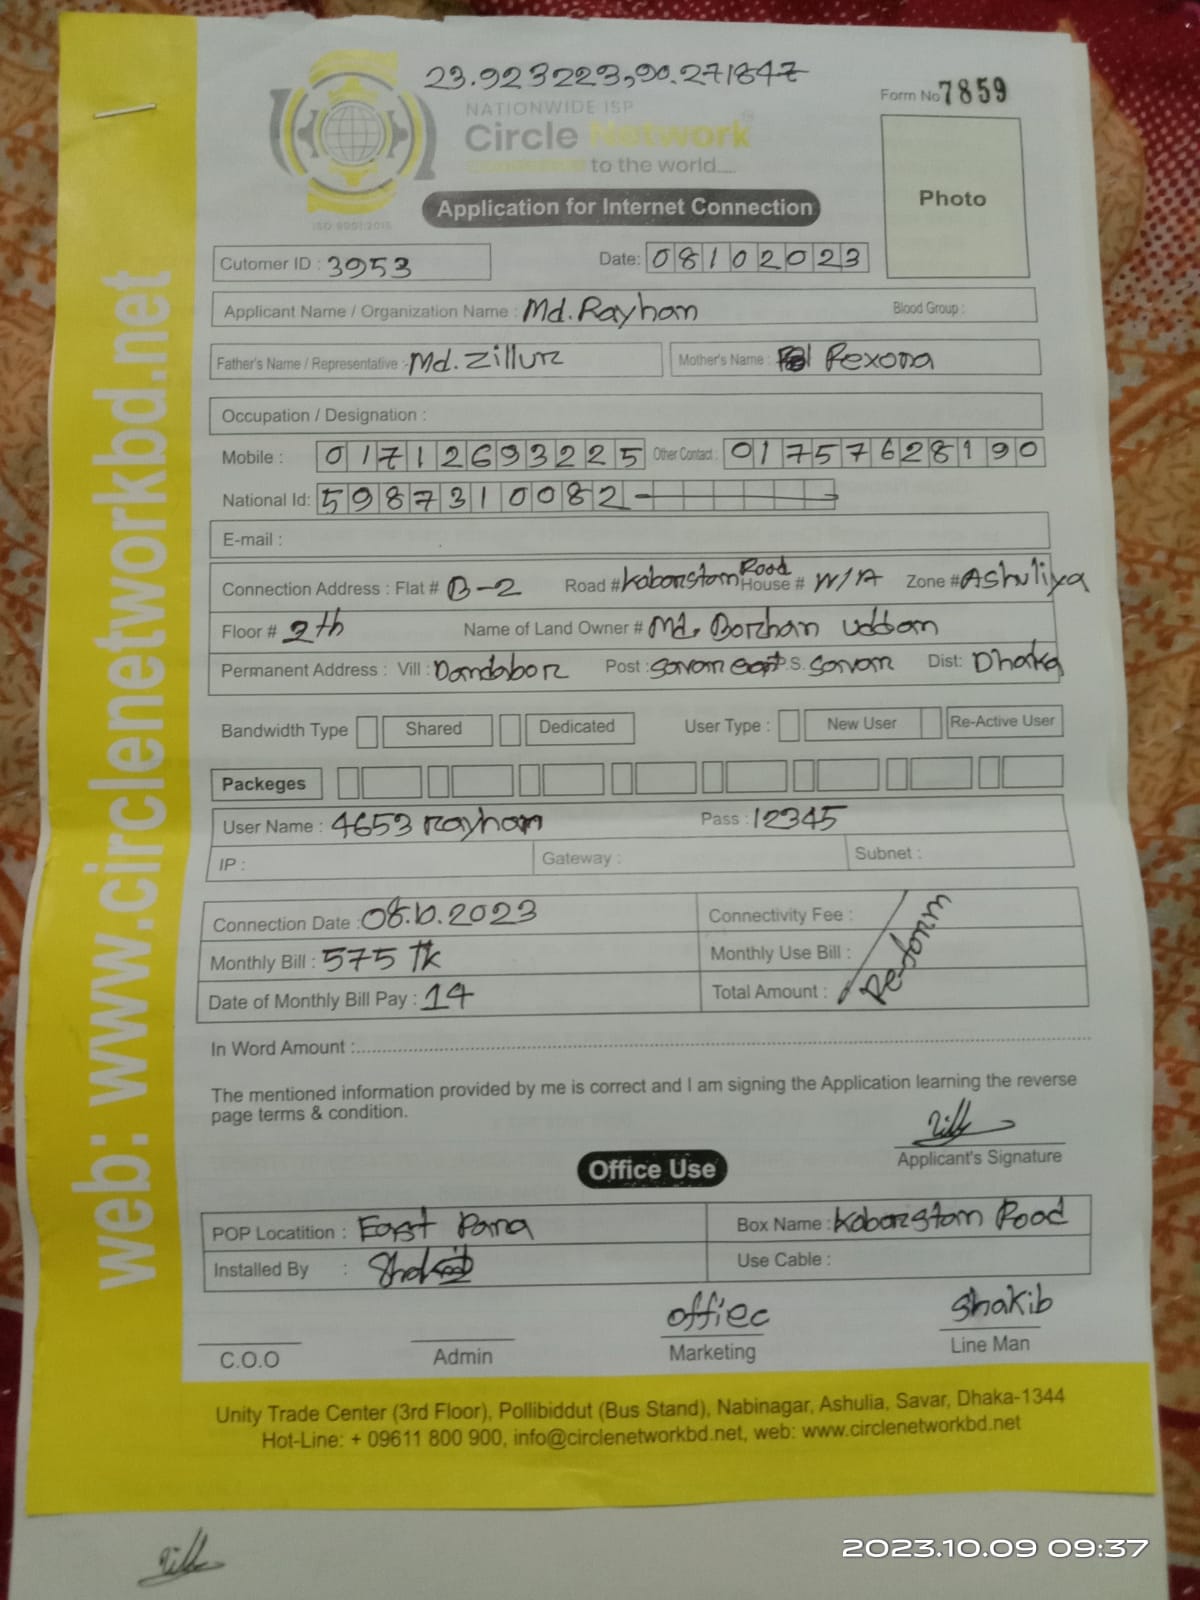 23.923223,90.271847
NATIONWIDE ISP
Form No 7859
Circle Network
to the world....
Photo
Application for Internet Connection
ISO 9001:2015
Cutomer ID : 3953 Date: 08102023
Applicant Name / Organization Name : Md. Rayhan Blood Group :
Father's Name / Representative : Md. Zillur Mother's Name : Rexona
Occupation / Designation :
Mobile : 01712693225 Other Contact : 01757628190
National Id: 5987310082
E-mail :
Connection Address : Flat # B-2 Road # Kaborstam Road House # N/A Zone # Ashuliya
Floor # 2th Name of Land Owner # Md. Borhan Uddan
Permanent Address : Vill : Dandabor Post : Savar East P.S. Savar Dist: Dhaka
Bandwidth Type Shared Dedicated User Type : New User Re-Active User
Packeges
User Name : 4653 rayhan Pass : 12345
IP : Gateway : Subnet :
Connection Date : 08.10.2023 Connectivity Fee :
Monthly Bill : 575 Tk Monthly Use Bill :
Date of Monthly Bill Pay : 14 Total Amount : Re-form
In Word Amount :
The mentioned information provided by me is correct and I am signing the Application learning the reverse
page terms & condition.
Applicant's Signature
Office Use
POP Locatition : East Para Box Name : Kaborstam Road
Installed By : Use Cable :
offiec Shakib
C.O.O Admin Marketing Line Man
Unity Trade Center (3rd Floor), Pollibiddut (Bus Stand), Nabinagar, Ashulia, Savar, Dhaka-1344
Hot-Line: + 09611 800 900, info@circlenetworkbd.net, web: www.circlenetworkbd.net
web: www.circlenetworkbd.net
2023.10.09 09:37